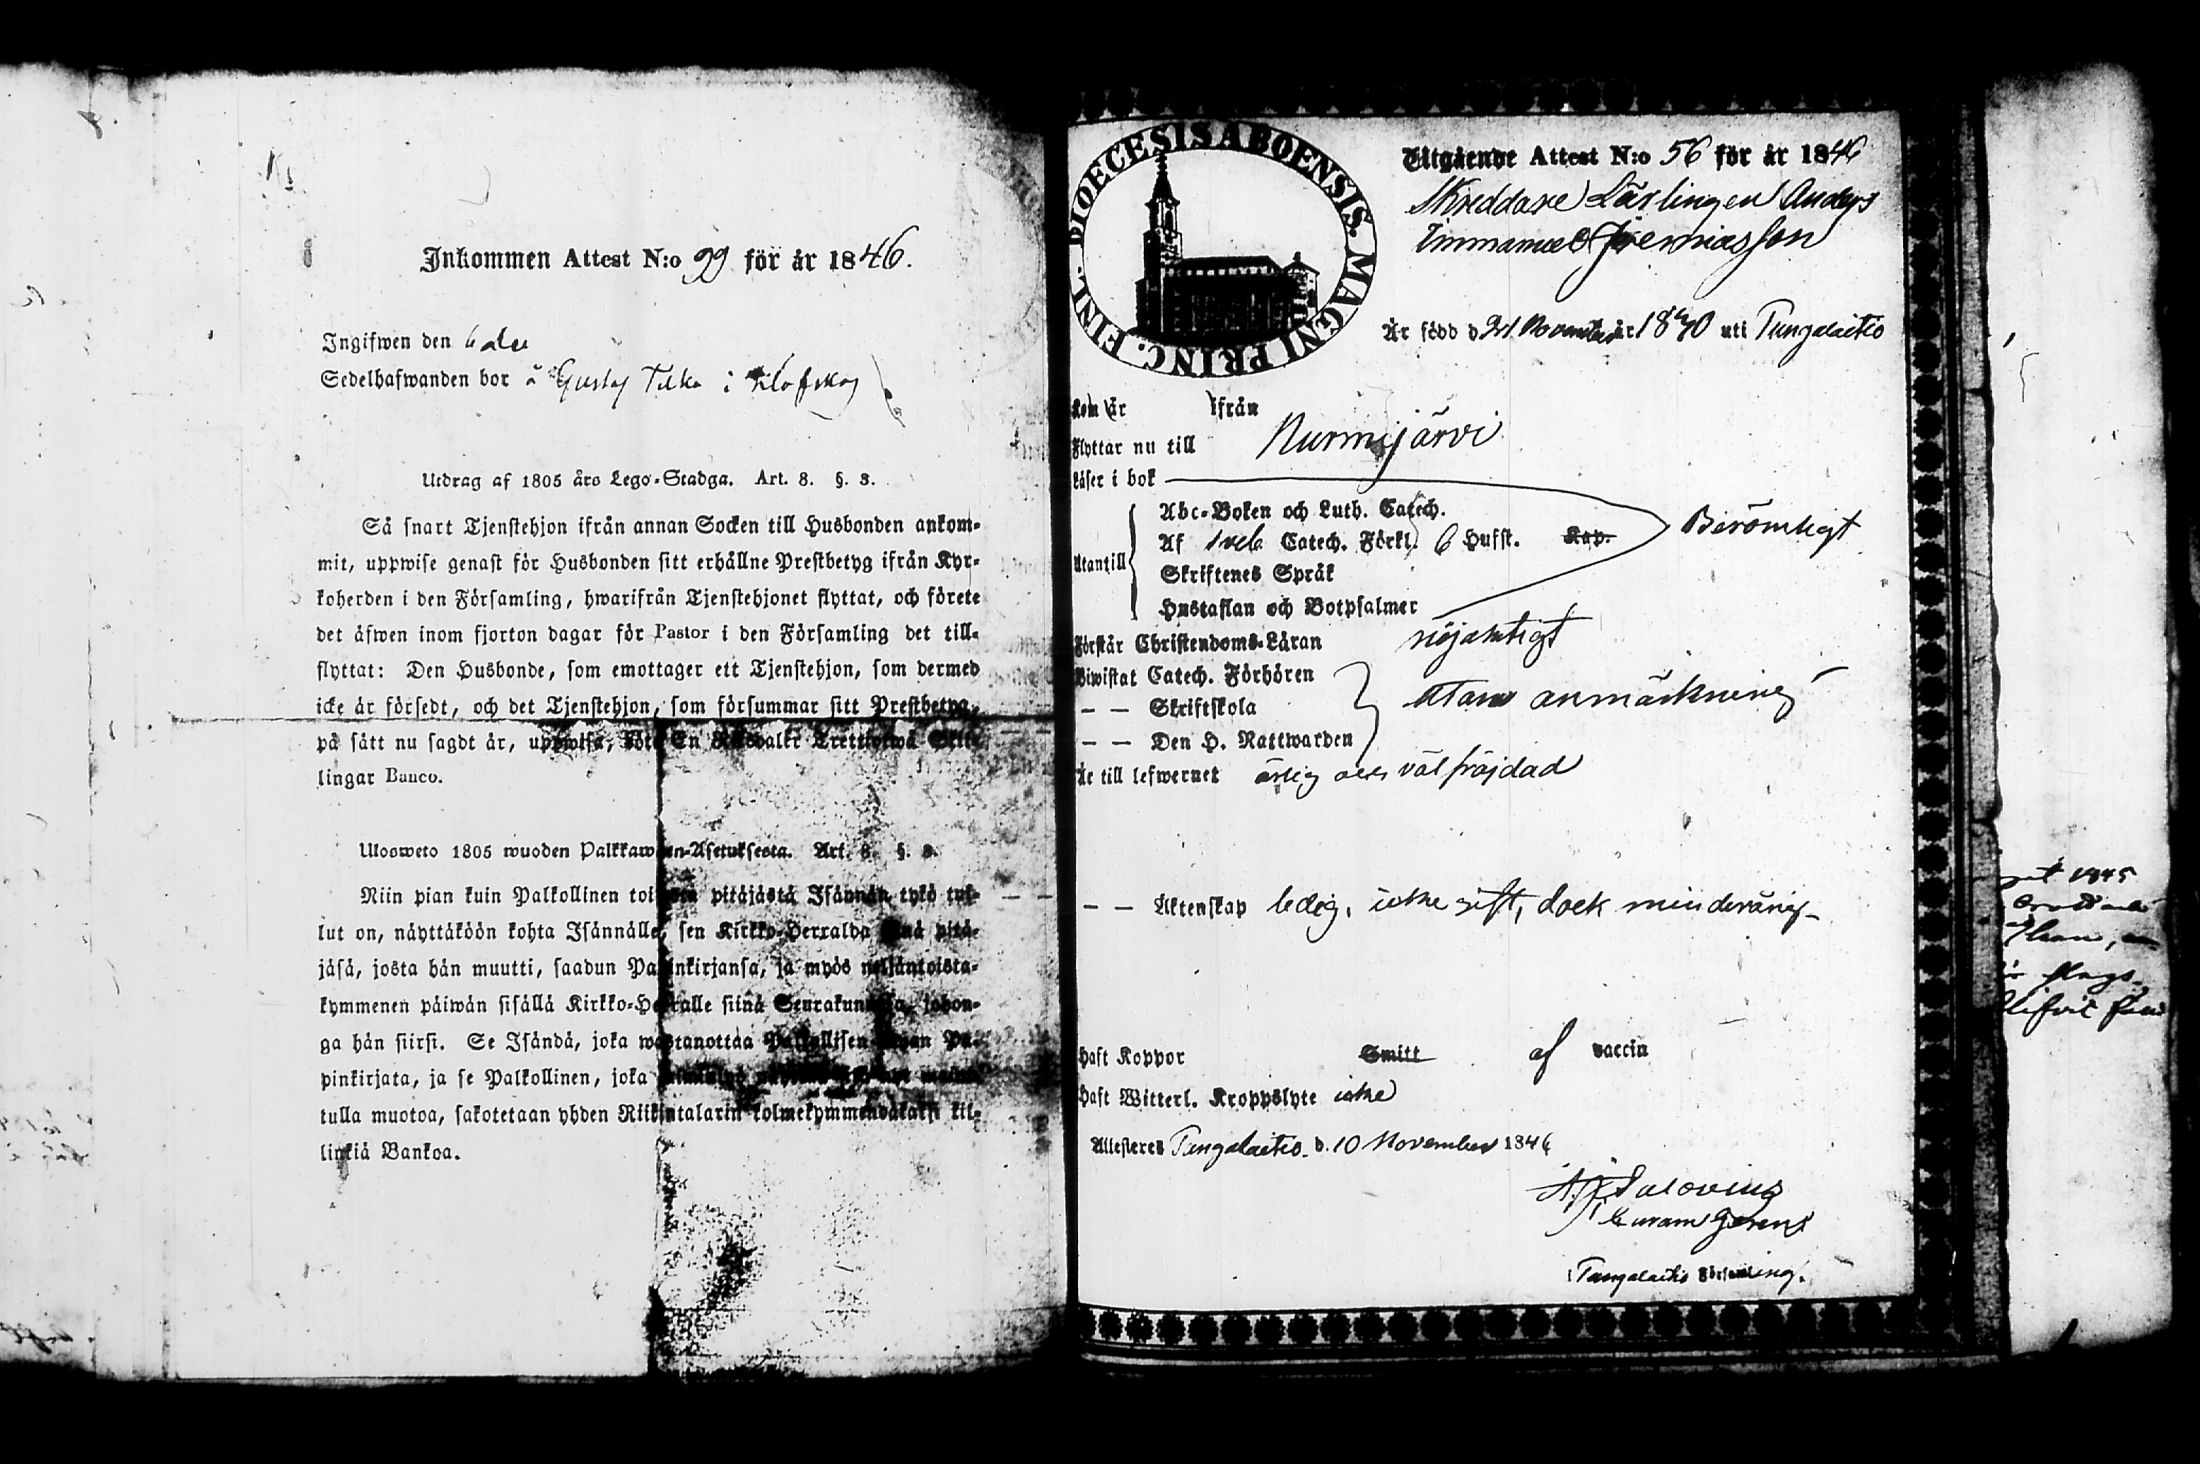 Inkommen Attest N:o 99 för år 1846.
Ingifwen den
Sedelhafwanden bor å Gustaf Tilka i
Utdrag af 1805 års Lego-Stadga. Art. 8. §. 3.
Så snart Tjenstehjon ifrån annan Socken till Husbonden ankom-
mit, uppwise genast för Husbonden sitt erhållne Prestbetyg ifrån Kyr-
koherden i den Församling, hwarifrån Tjenstehjonet flyttat, och förete
det äfwen inom fjorton dagar för Pastor i den Församling det till-
flyttat: Den Husbonde, som emottager ett Tjenstehjon, som dermed
icke är försedt, och det Tjenstehjon, som försummar sitt Prestbetyg,
på sätt nu sagdt är, uppwisa, böte En Riksdaler Trettiotwå Skil-
lingar Banco.
Uloosweto 1805 wuoden Palkkawäen-Asetuksesta. Art. 8. §. 3.
Niin pian kuin Palkollinen toisesta pitäjästä Isännän tykö tul-
lut on, näyttäköön kohta Isännälle, sen Kirkko-Herralda siinä pitä-
jäsä, josta hän muutti, saadun Papinkirjansa, ja myös neljäntoista-
kymmenen päiwän sisällä Kirkko-Herralle siinä Seurakunnasa, johon-
ga hän siirsi. Se Isändä, joka wastanottaa Palkollisen ilman Pa-
pinkirjata, ja se Palkollinen, joka
tulla muotoa, sakotetaan yhden Riikintalarin kolmekymmendäkaksi kil-
linkiä Bankoa.
DIOECESIS ABOENSIS. MAGNI PRINC. FINL.
Utgående Attest N:o 56 för år 1846
Skreddare Lärlingen Anders
Immanuel Jeremiasson
Är född d 21 November år 1830 uti Pungalaitio
Kom år ifrån
Flyttar nu till Nurmijärvi
Läser i bok
Utantill
Abc-Boken och Luth. Catech.
Af Sveb Catech. Förkl. 6 Hufst. Kap.
Berömligt
Skriftenes Språk
Hustaflan och Botpsalmer
Förstår Christendoms-Läran nöjaktigt
Biwistat Catech. Förhören
— — Skriftskola utan anmärkning
— — Den H. Nattwarden
Är till lefwernet ärlig och välfräjdad
— — Äktenskap ledig, icke gift, dock minderårig
Haft Koppor Smitt af vaccin
Haft Witterl. Kroppslyte icke
Attesteres Pungalaitio d. 10 November 1846
Salovius
Curam Gerens
i Pungalaitio Församling.